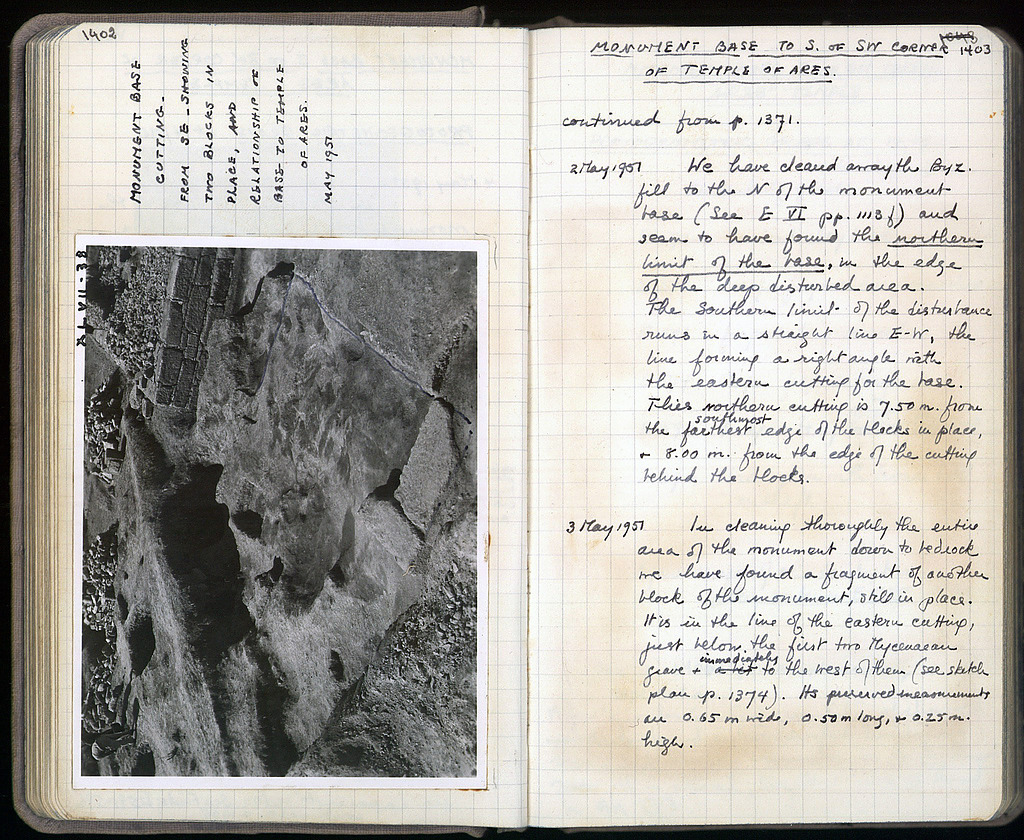 1402
MONUMENT BASE
CUTTING.
FROM SE - SHOWING
TWO BLOCKS IN
PLACE, AND
RELATIONSHIP OF
BASE TO TEMPLE
OF ARES.
MAY 1951
XLVII-38
1403
MONUMENT BASE TO S. OF SW CORNER
OF TEMPLE OF ARES.
continued from p. 1371.
2 May 1951 We have cleared away the Byz.
fill to the N of the monument
base (See E VI pp. 1113 f) and
seem to have found the northern
limit of the base, in the edge
of the deep disturbed area.
The Southern limit of the disturbance
runs in a straight line E-W, the
line forming a right angle with
the eastern cutting for the base.
This northern cutting is 7.50 m. from
southmost
the farthest edge of the blocks in place,
+ 8.00 m. from the edge of the cutting
behind the blocks.
3 May 1951 In cleaning thoroughly the entire
area of the monument down to bedrock
we have found a fragment of another
block of the monument, still in place.
It is in the line of the eastern cutting,
just below the first two Mycenaean
immediately
grave + to the west of them (see sketch
plan p. 1374). Its preserved measurements
are 0.65 m wide, 0.50 m long, + 0.25 m.
high.